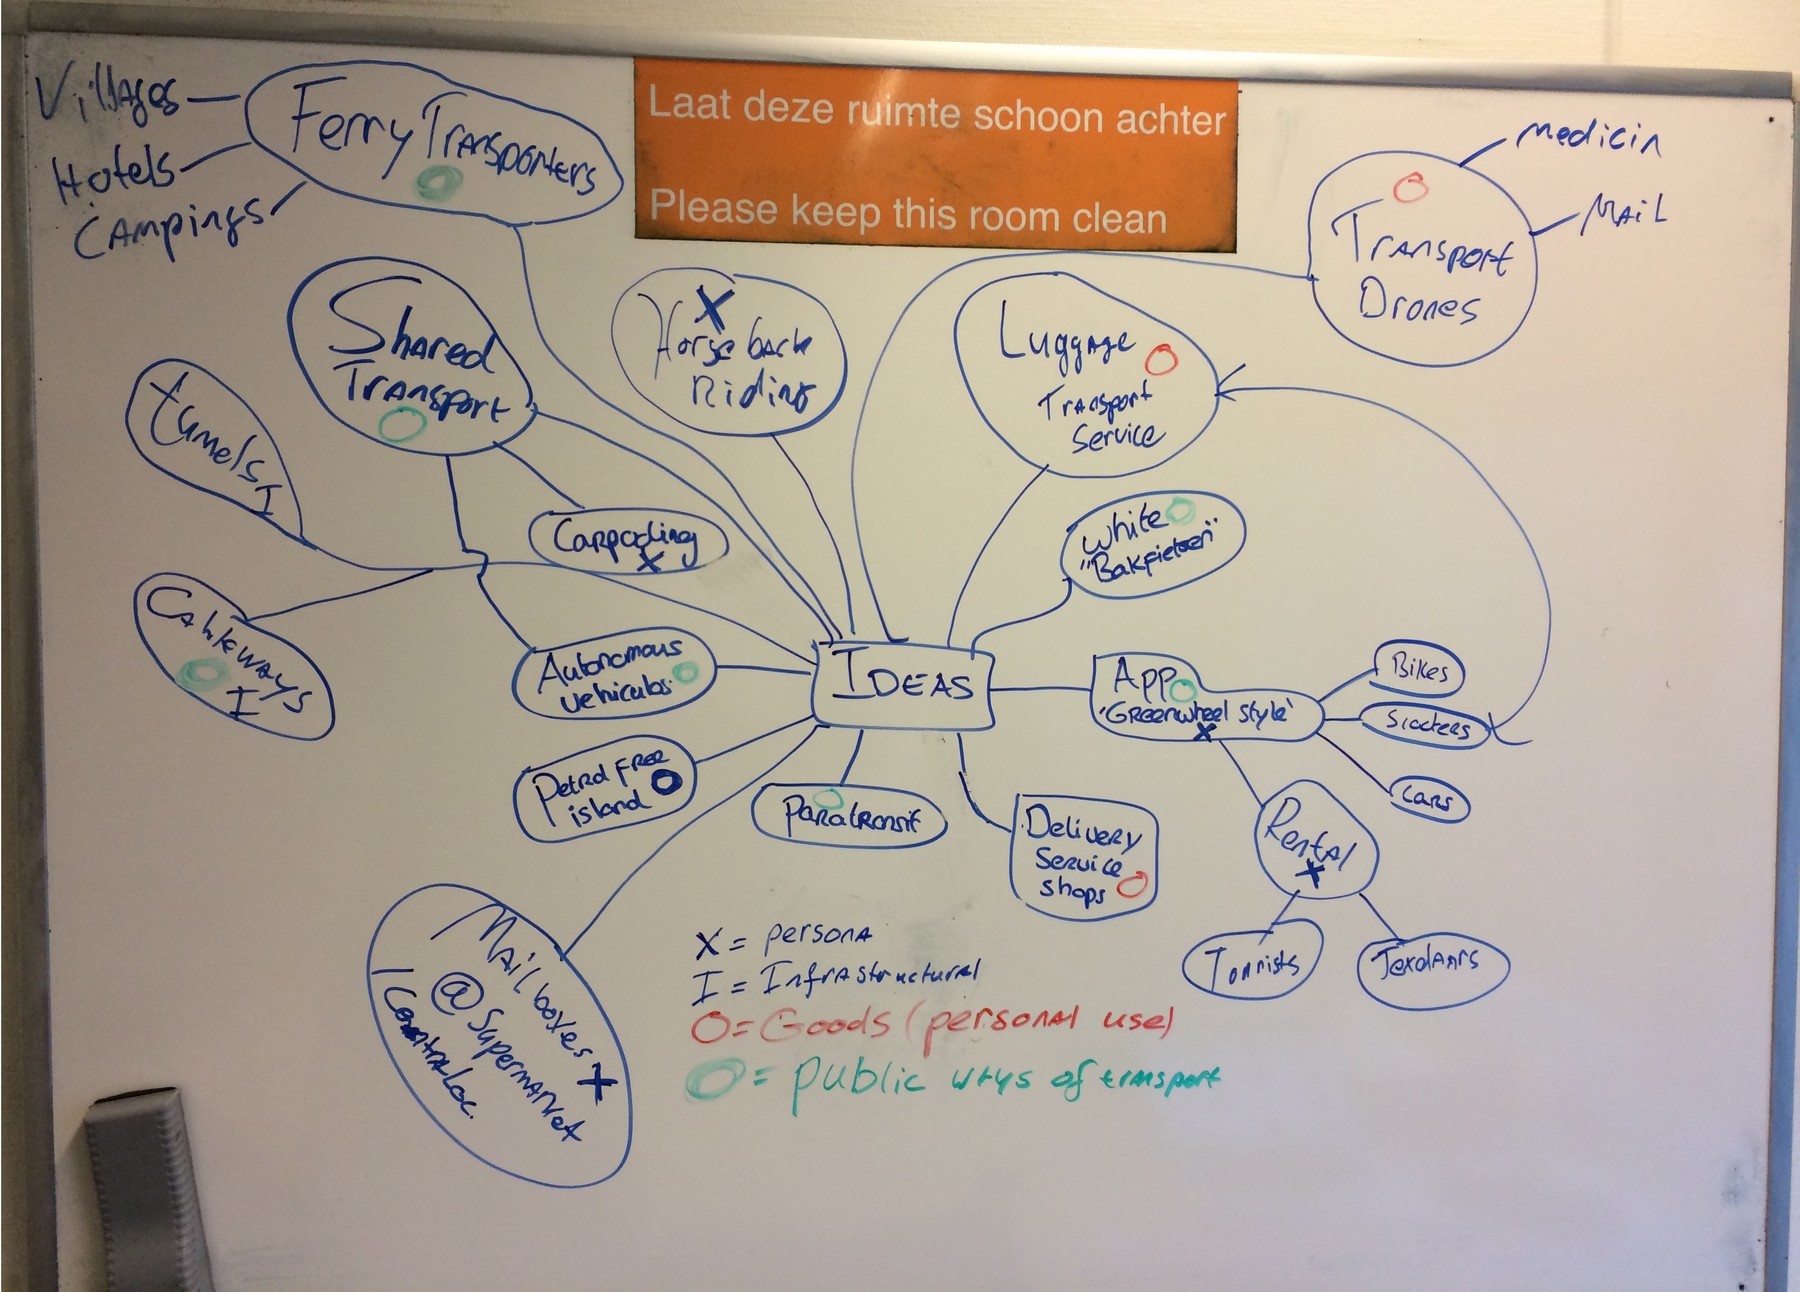 Laat deze ruimte schoon achter
Please keep this room clean
Villages
Hotels
Campings
Ferry Transporters
Medicin
Mail
Transport
Drones
Shared
Transport
X
Horse back
Riding
Luggage
Transport
Service
tunnels
I
Carpooling
X
White
"Bakfietsen"
Cableways
I
Autonomous
vehicules
IDEAS
App
'Greenwheel style'
X
Bikes
Scooters
Cars
Petrol Free
island
Paratransit
Delivery
Service
shops
Rental
X
Tourists
Texelaars
Mail boxes X
@ Supermarket
/ Central Loc.
X = persona
I = Infrastructural
O = Goods (personal use)
O = public ways of transport